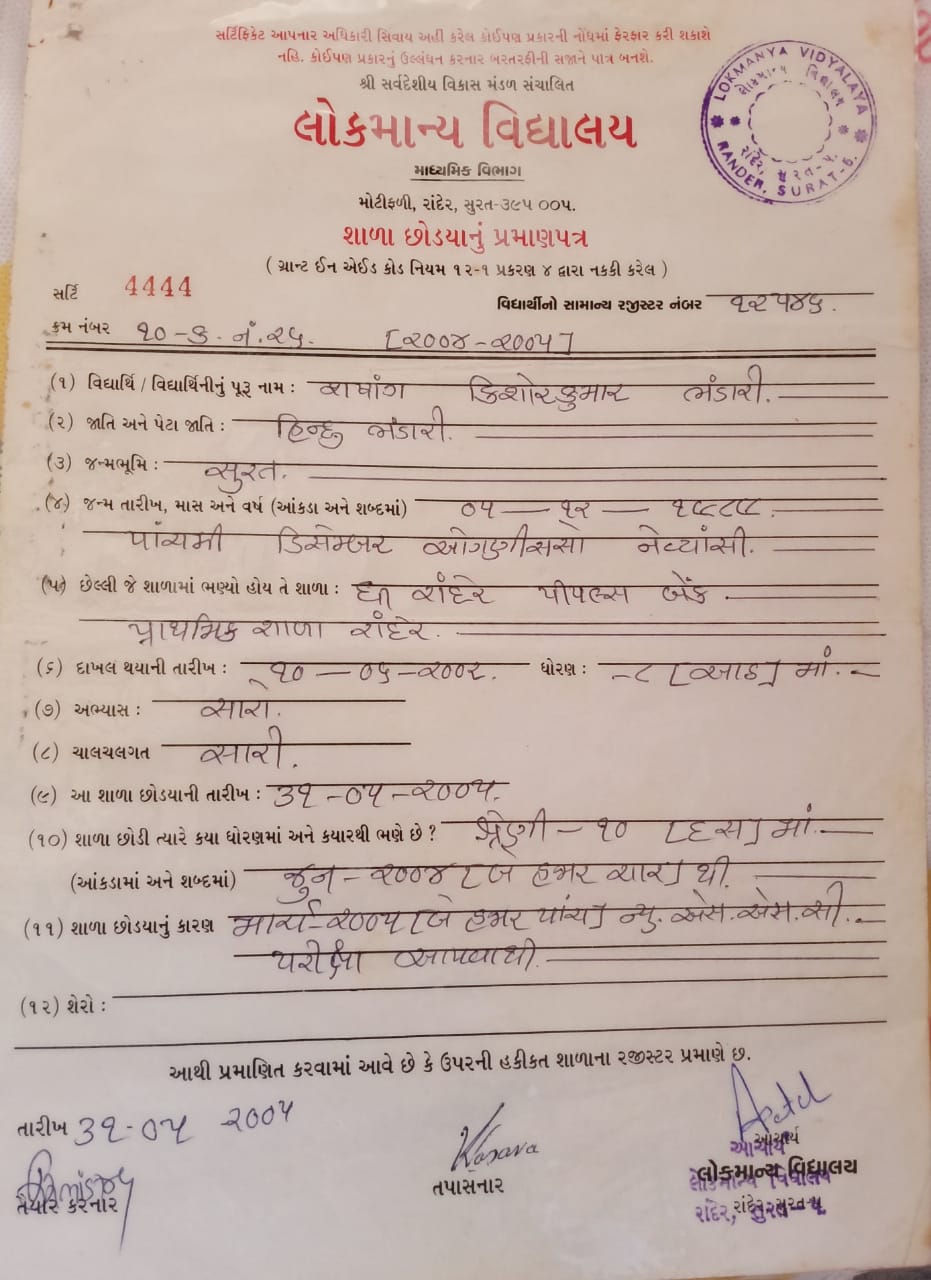 સર્ટિફિકેટ આપનાર અધિકારી સિવાય અહીં કરેલ કોઈપણ પ્રકારની નોંધમાં ફેરફાર કરી શકાશે
નહિ. કોઈપણ પ્રકારનું ઉલ્લંઘન કરનાર બરતરફીની સજાને પાત્ર બનશે.
શ્રી સર્વદેશીય વિકાસ મંડળ સંચાલિત
લોકમાન્ય વિદ્યાલય
માધ્યમિક વિભાગ
મોટીફળી, રાંદેર, સુરત-૩૯૫ ૦૦૫.
LOKMANYA VIDYALAYA
RANDER, SURAT-5.
લોકમાન્ય વિદ્યાલય
રાંદેર, સુરત-૫.
શાળા છોડયાનું પ્રમાણપત્ર
( ગ્રાન્ટ ઈન એઈડ કોડ નિયમ ૧૨-૧ પ્રકરણ ૪ દ્વારા નક્કી કરેલ )
સર્ટિ 4444
વિદ્યાર્થીનો સામાન્ય રજીસ્ટર નંબર ૧૨૫૪૬.
ક્રમ નંબર ૧૦-ક. નં.૨૬. [૨૦૦૪-૨૦૦૫]
(૧) વિદ્યાર્થિ / વિદ્યાર્થિનીનું પૂરૂ નામ : કિશોરકુમાર ભંડારી.
(૨) જાતિ અને પેટા જાતિ : હિન્દુ ભંડારી.
(૩) જન્મભૂમિ : સુરત.
(૪) જન્મ તારીખ, માસ અને વર્ષ (આંકડા અને શબ્દમાં) ૦૫ — ૧૨ — ૧૯૮૯.
પાંચમી ડિસેમ્બર ઓગણીસસો નેવ્યાંસી.
(૫) છેલ્લી જે શાળામાં ભણ્યો હોય તે શાળા : ધી રાંદેર પીપલ્સ બેંક
પ્રાથમિક શાળા રાંદેર.
(૬) દાખલ થયાની તારીખ : ૧૦ — ૦૬ — ૨૦૦૨. ધોરણ : ૮ [આઠ] માં.
(૭) અભ્યાસ : સારો.
(૮) ચાલચલગત સારી.
(૯) આ શાળા છોડયાની તારીખ : ૩૧ - ૦૫ - ૨૦૦૫.
(૧૦) શાળા છોડી ત્યારે કયા ધોરણમાં અને કયારથી ભણે છે ? શ્રેણી - ૧૦ [દસ] માં.
(આંકડામાં અને શબ્દમાં) જુન - ૨૦૦૪ [બે હજાર ચાર] થી.
(૧૧) શાળા છોડયાનું કારણ માર્ચ-૨૦૦૫ [બે હજાર પાંચ] ન્યુ. એસ. એસ. સી.
પરીક્ષા આપવાથી.
(૧૨) શેરો :
આથી પ્રમાણિત કરવામાં આવે છે કે ઉપરની હકીકત શાળાના રજીસ્ટર પ્રમાણે છે.
તારીખ ૩૧-૦૫ -૨૦૦૫
તૈયાર કરનાર
તપાસનાર
આચાર્ય
લોકમાન્ય વિદ્યાલય
રાંદેર, સુરત-૫
આચાર્ય
લોકમાન્ય વિદ્યાલય
રાંદેર, સુરત-૫